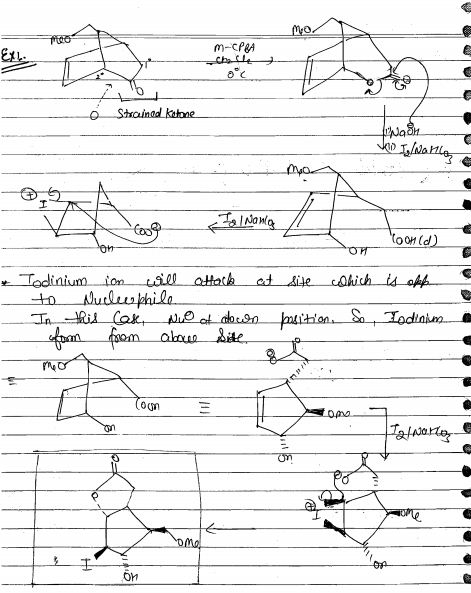 MeO
Ex1.
1°
2°
O
O
Strained Ketone
m-CPBA
CH2Cl2
0°C
MeO
O
O
i) NaOH
ii) I2/NaHCO3
MeO
I2/NaHCO3
COOH (d)
OH
I
COO
OH
* Iodinium ion will attack at site which is opp.
to Nucleophile
In this Case, Nu at down position. So, Iodinium
form from above side.
MeO
COOH
OH
≡
≡
O
O
OMe
OH
I2/NaHCO3
O
O
I
OMe
OH
O
O
OMe
I
OH